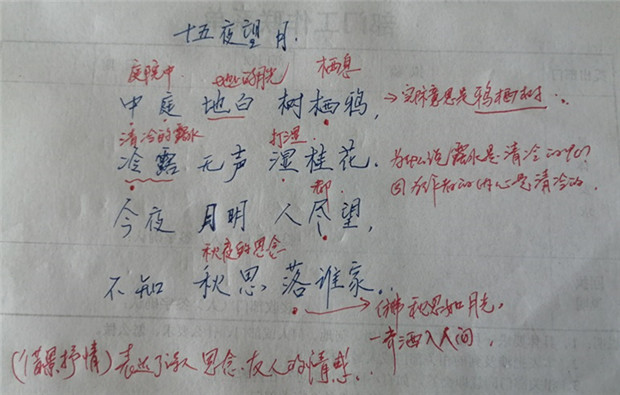 十五夜望月.
庭院中 地上的月光 栖息
中庭地白树栖鸦, →实际意思是鸦栖树.
清冷的露水 打湿
冷露无声湿桂花. 为什么说露水是清冷的呢?
都 因为作者的内心是清冷的.
今夜月明人尽望,
秋夜的思念
不知秋思落谁家.
→ 秋思如月光,
一齐洒入人间,
(借景抒情)表达了诗人思念友人的情